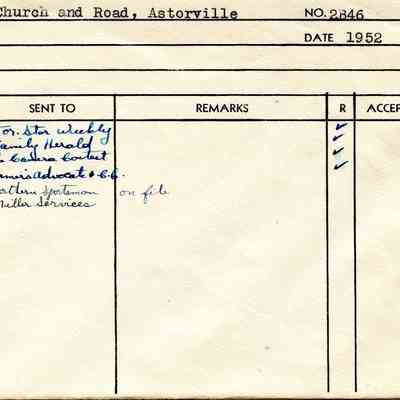 Church and Road, Astorville NO. 2846
DATE 1952
SENT TO REMARKS R ACCEP
Tor. Star Weekly
Family Herald
Camera Contest
rmer's Advocate & C.G.
orthern Sportsman on file
Miller Services